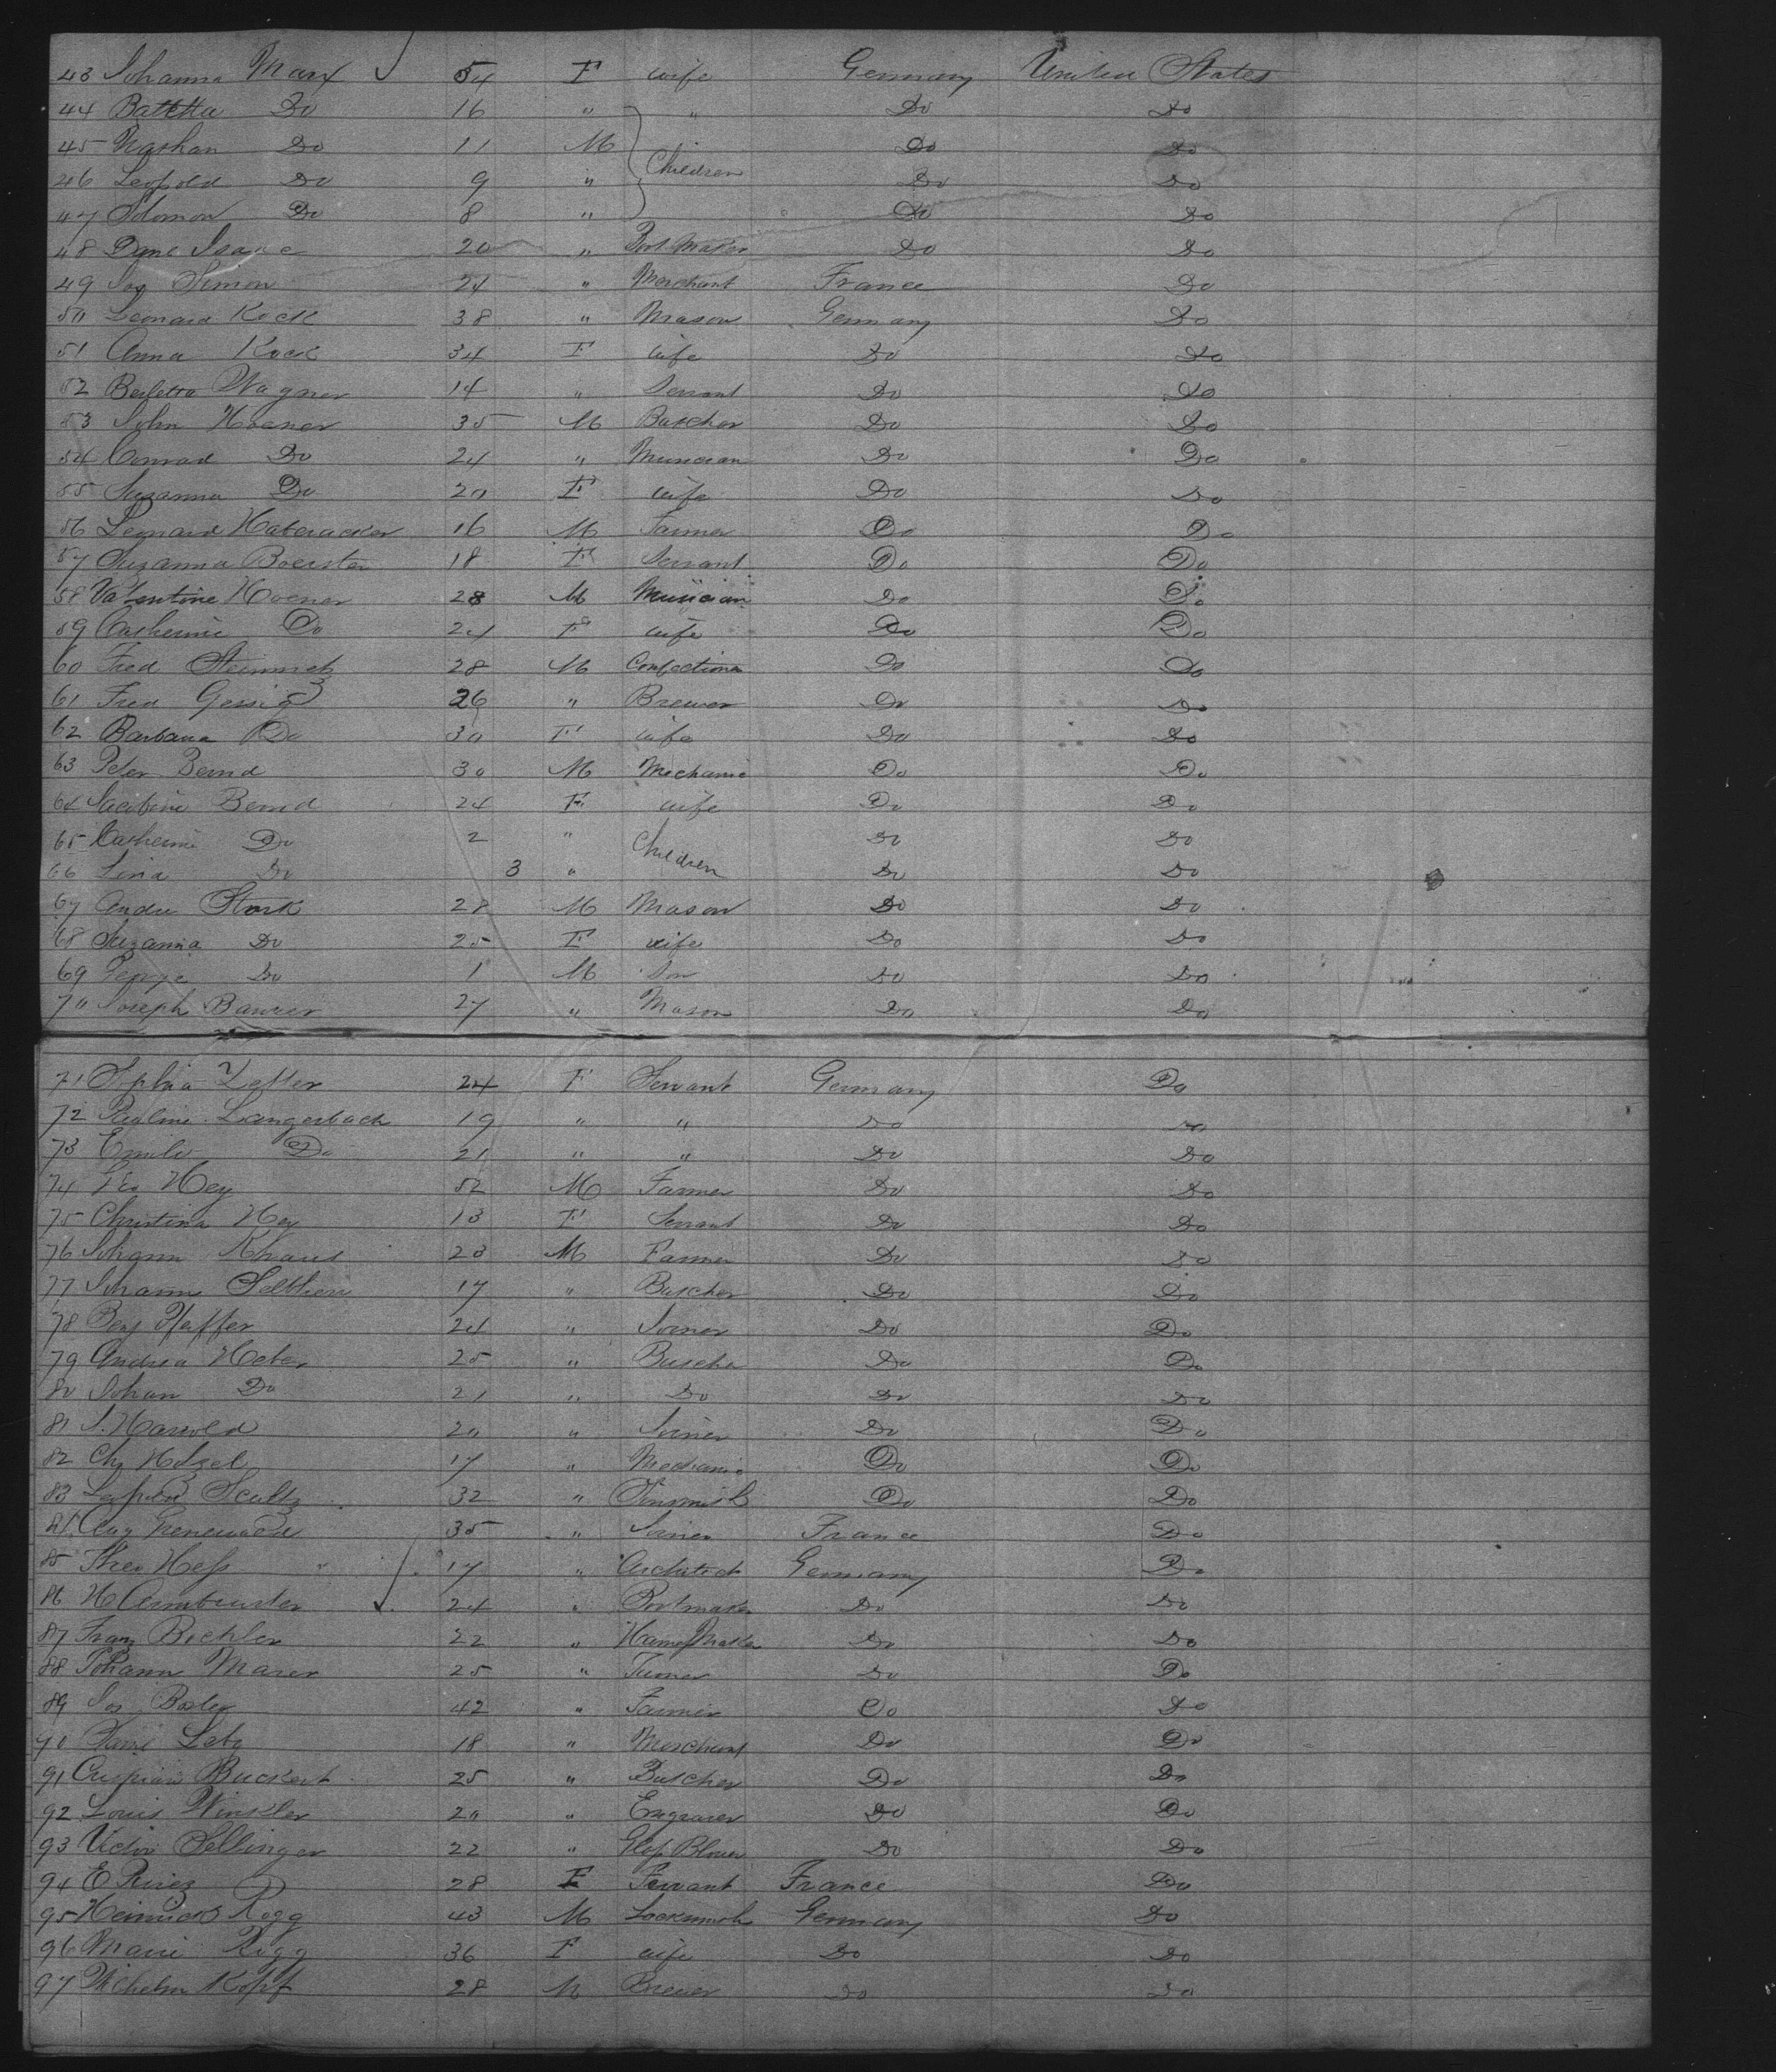 43 Johanna Marx 54 F wife Germany United States
44 Babetta Do 16 " " Do Do
45 Nathan Do 11 M Do Do
46 Leopold Do 9 " Children Do Do
47 Solomon Do 8 " Do Do
48 Isaac 20 " Do Do
49 Jos Simon 24 " Merchant France Do
50 Leonard Kock 38 " Mason Germany Do
51 Anna Kock 34 F wife Do Do
52 Wagner 14 " Servant Do Do
53 John Hoener 35 M Butcher Do Do
54 Conrad Do 24 " Musician Do Do
55 Suzanna Do 20 F wife Do Do
56 Leonard Haberacker 16 M Farmer Do Do
57 Suzanna Boerster 18 F Servant Do Do
58 Valentine Hoener 28 M Musician Do Do
59 Catherine Do 24 F wife Do Do
60 Fred Steinmetz 28 M Confectioner Do Do
61 Fred Gessig 26 " Brewer Do Do
62 Barbara Do 30 F wife Do Do
63 Peter Bernd 30 M Mechanic Do Do
64 Jacobine Bernd 24 F wife Do Do
65 Catherine Do 2 " Children Do Do
66 Lina Do 3 " Do Do
67 Andre Stork 28 M Mason Do Do
68 Suzanna Do 25 F wife Do Do
69 George Do 1 M Son Do Do
70 Joseph Baurer 27 " Mason Do Do
71 Sophia Zeller 24 F Servant Germany Do
72 Pauline Langerbach 19 " " Do Do
73 Emilie Do 21 " " Do Do
74 Leo Hey 52 M Farmer Do Do
75 Christina Hey 13 F Servant Do Do
76 Johann Khaus 23 M Farmer Do Do
77 Johann 17 " Butcher Do Do
78 Benj Pfaffer 24 " Joiner Do Do
79 Andrea Heber 25 " Butcher Do Do
80 Johan Do 21 " Do Do Do
81 J. Harold 20 " Joiner Do Do
82 Ch Hetzel 17 " Mechanic Do Do
83 Leopold Scultz 32 " Tinsmith Do Do
84 Aug 35 " Joiner France Do
85 Theo Hess 17 " Architect Germany Do
86 H Armbruster 24 " Do Do
87 Franz Bichler 22 " Maker Do Do
88 Johann Maser 25 " Turner Do Do
89 Jos Bosler 42 " Farmer Do Do
90 18 " Merchant Do Do
91 Crispian Buckert 25 " Butcher Do Do
92 Louis Winkler 20 " Engraver Do Do
93 Victor Sellinger 22 " Glass Blower Do Do
94 E Rivez 28 F Servant France Do
95 Heinrich Rogg 43 M Locksmith Germany Do
96 Marie Rogg 36 F wife Do Do
97 Wilhelm Kopf 28 M Brewer Do Do